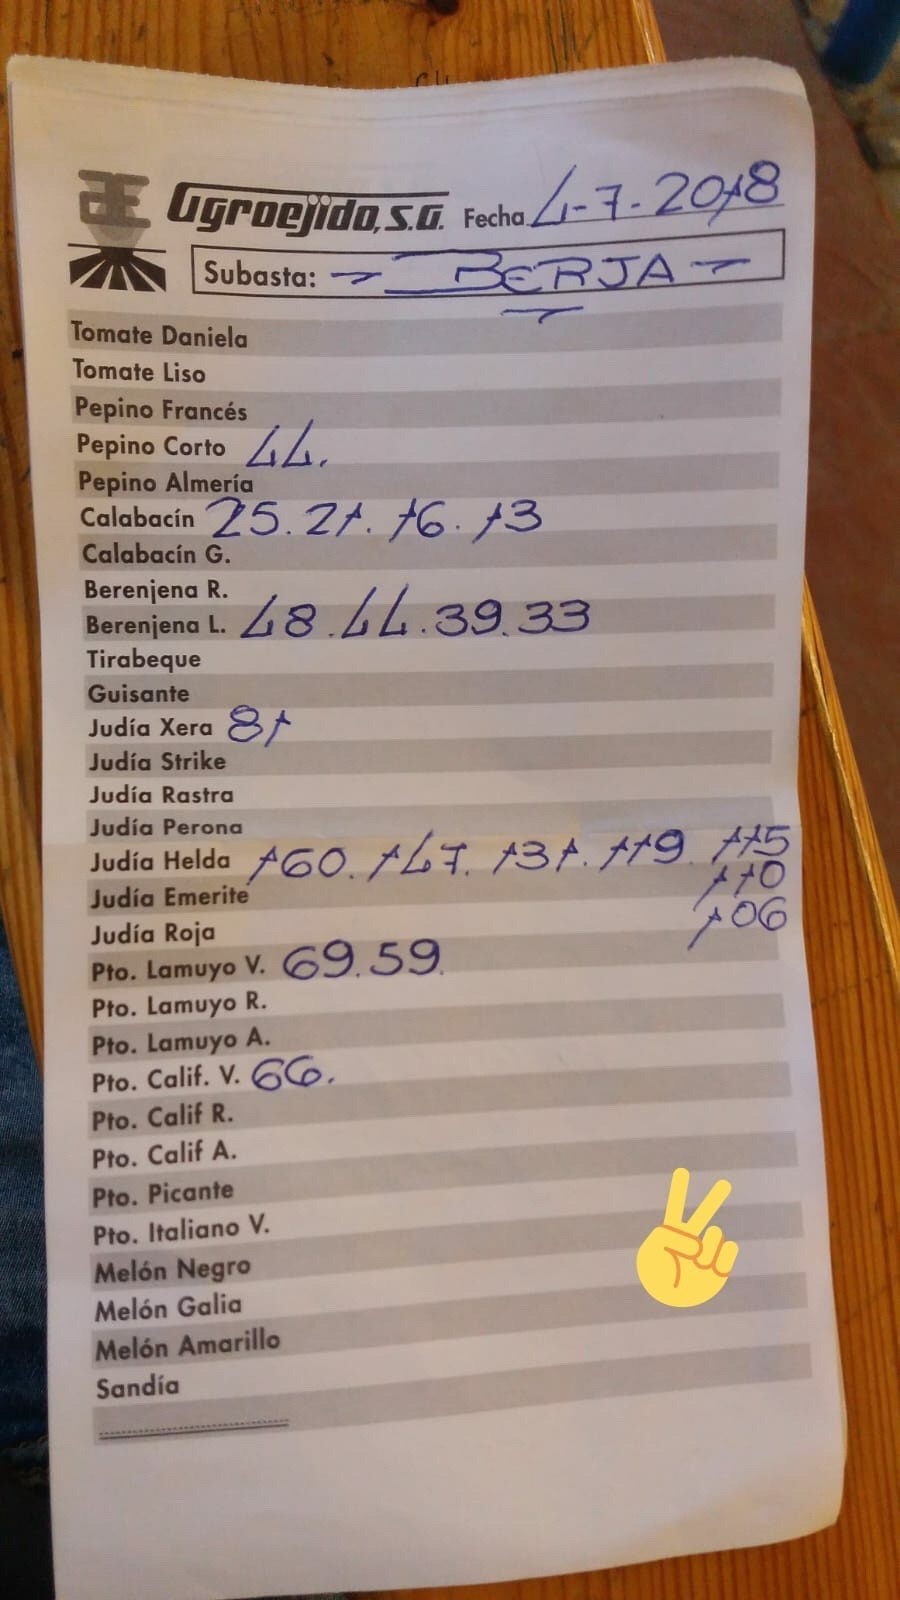 Agroejido, S.A. Fecha 4-7-2018
Subasta: - BERJA -
Tomate Daniela
Tomate Liso
Pepino Francés
Pepino Corto 44.
Pepino Almería
Calabacín 25. 21. 16. 13
Calabacín G.
Berenjena R.
Berenjena L. 48. 44. 39. 33
Tirabeque
Guisante
Judía Xera 81
Judía Strike
Judía Rastra
Judía Perona
Judía Helda 160. 147. 131. 119. 115
110
Judía Emerite
106
Judía Roja
Pto. Lamuyo V. 69. 59.
Pto. Lamuyo R.
Pto. Lamuyo A.
Pto. Calif. V. 66.
Pto. Calif R.
Pto. Calif A.
Pto. Picante
Pto. Italiano V.
Melón Negro
Melón Galia
Melón Amarillo
Sandía